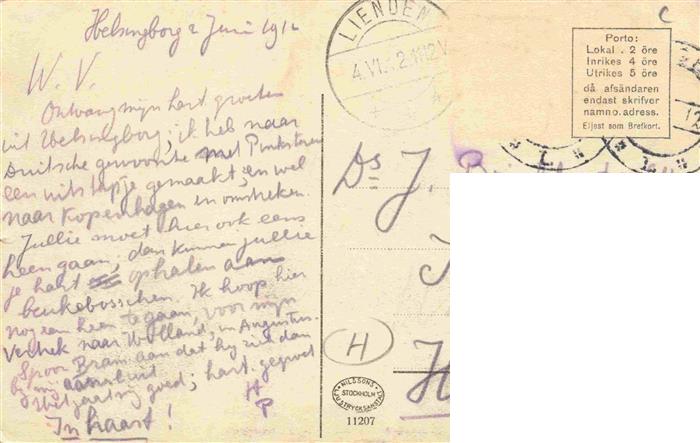 Helsingborg 2 Juni 1912
W. V.
Ontvang mijn hart. groeten
uit Helsingborg; ik heb naar
Duitsche gewoonte met Pinksteren
een uitstapje gemaakt, en wel
naar Kopenhagen en omstreken.
Jullie moet hier ook eens
heen gaan, dan kunnen jullie
je hart ophalen aan
beukebosschen. Ik hoop hier
nog een keer te gaan, voor mijn
vertrek naar Holland, in Augustus.
Spoor Bram aan dat hij zich dan
bij mij aansluit.
Het gaat mij goed; hart. gegroet
H
P
In haast!
LIENDEN
4.VI.12
Porto:
Lokal . 2 öre
Inrikes 4 öre
Utrikes 5 öre
då afsändaren
endast skrifver
namn o. adress.
Eljest som Brefkort.
Ds J.
H
NILSSONS
STOCKHOLM
11207